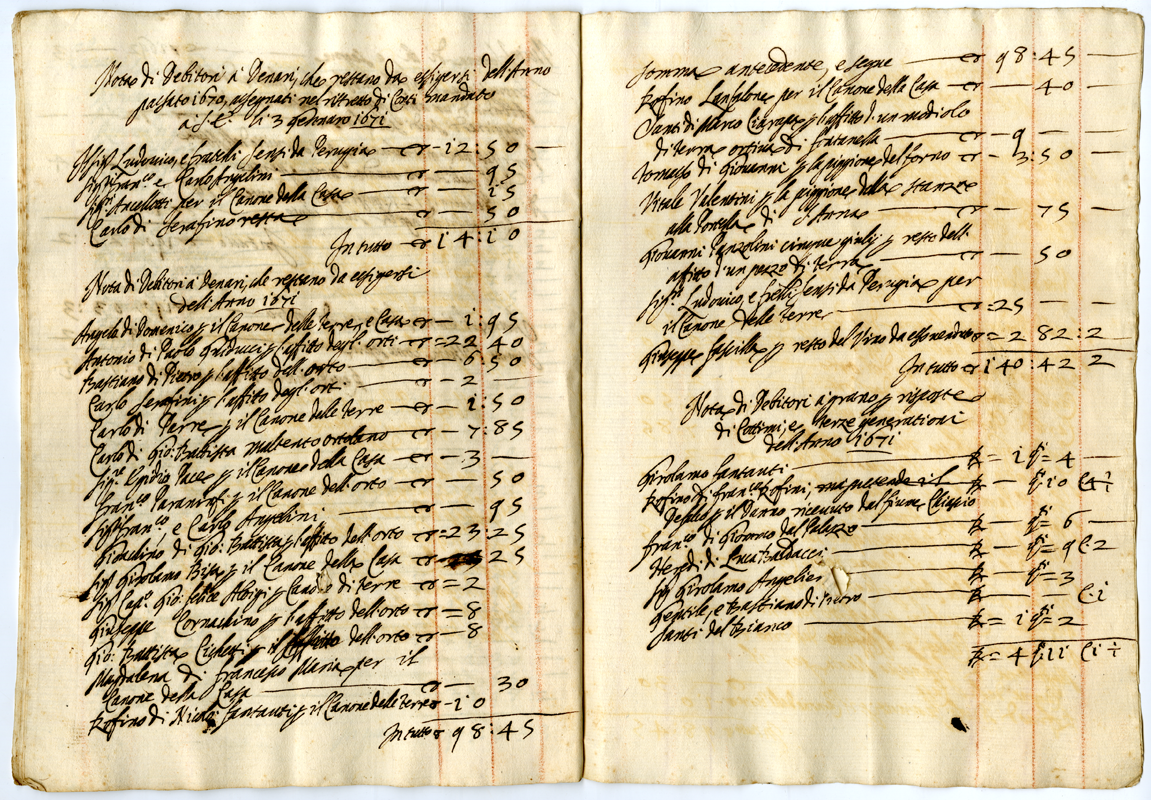 Nota di Debitori à Denari, che restano da essigersi dell'Anno
passato 1670, assegnati nel ristretto di Conti mandato
a S. E. li 3 gennaro 1671
Sig.ri Ludovico, e fratelli Sensi da Perugia — — 12:50 —
Sig.ri Fran.co e Carlo Angelini — — 95
Sig.r Ancellotti per il Canone della Casa — — 15
Carlo di Serafino resta — — 50
In tutto — 14:10
Nota di Debitori à Denari, che restano da essigersi
dell'Anno 1671
Angelo di Domenico p il Canone delle terre, e Casa — 1:95
Antonio di Paolo Balducci p l'affitto degl'orti = 22 40
Bastiano di Pietro p l'affitto dell'orto — 6:50
Carlo Serafini p l'affitto degl'orti — 2 —
Carlo di Pierre p il Canone delle terre — 1:50
Carlo di Gio: Battista ortolano — 7:85
Sig.r Egidio Pace p il Canone della Casa — 3 —
Fran.co p il Canone dell'orto — 50
Sig.ri Fran.co, e Carlo Angelini — 95
Gio: Battista p l'affitto dell'orto = 23:25
Sig.r Girolamo p il Canone della Casa 25
Sig.r Cap.o Gio: Felice p Canone di terre = 2
Giuseppe p l'affitto dell'orto = 8
Gio: Battista p l'affitto dell'orto — 8
Madalena di Francesco Maria per il
Canone della Casa — 30
Rofino di Nicolò Santanti p il Canone delle terre — 10
In tutto 98:45
Somma antecedente, e segue — 98:45 —
Rofino per il Canone della Casa — 40 —
Santi di Marco p l'affitto d'un modiolo
di terra ortina di — 9 — —
Tomasso di Giovanni p la piggione del forno — 3:50 —
Vitale Valentini p la piggione della stanza
alla Portella di S. Anna — 75 —
Giovanni Panzolini cinque giulij p resto dell'
affitto d'un pezzo di terra — 50
Sig.ri Ludovico, e f.lli Sensi da Perugia per
il Canone delle terre = 25 — —
Giuseppe p resto del Vino da = 2 82:2
In tutto 140:42 2
Nota di Debitori à grano p risposte
di Cottimi, e terze generationi
dell'Anno 1671
Girolamo Santanti — = 1 = 4 —
Rofino di Fran.co Rofini, ma pretende il — 10
p il danno ricevuto dal fiume Chiascio
Fran.co di Giacomo dal Palazzo — = 6 —
Heredi di Luca Baldacci — = 9 C:2
Sig.r Girolamo Angelieri — = 3
Gentile, e Bastiano di Pietro — — C:1
Santi del Bianco — = 1 = 2
= 4 11